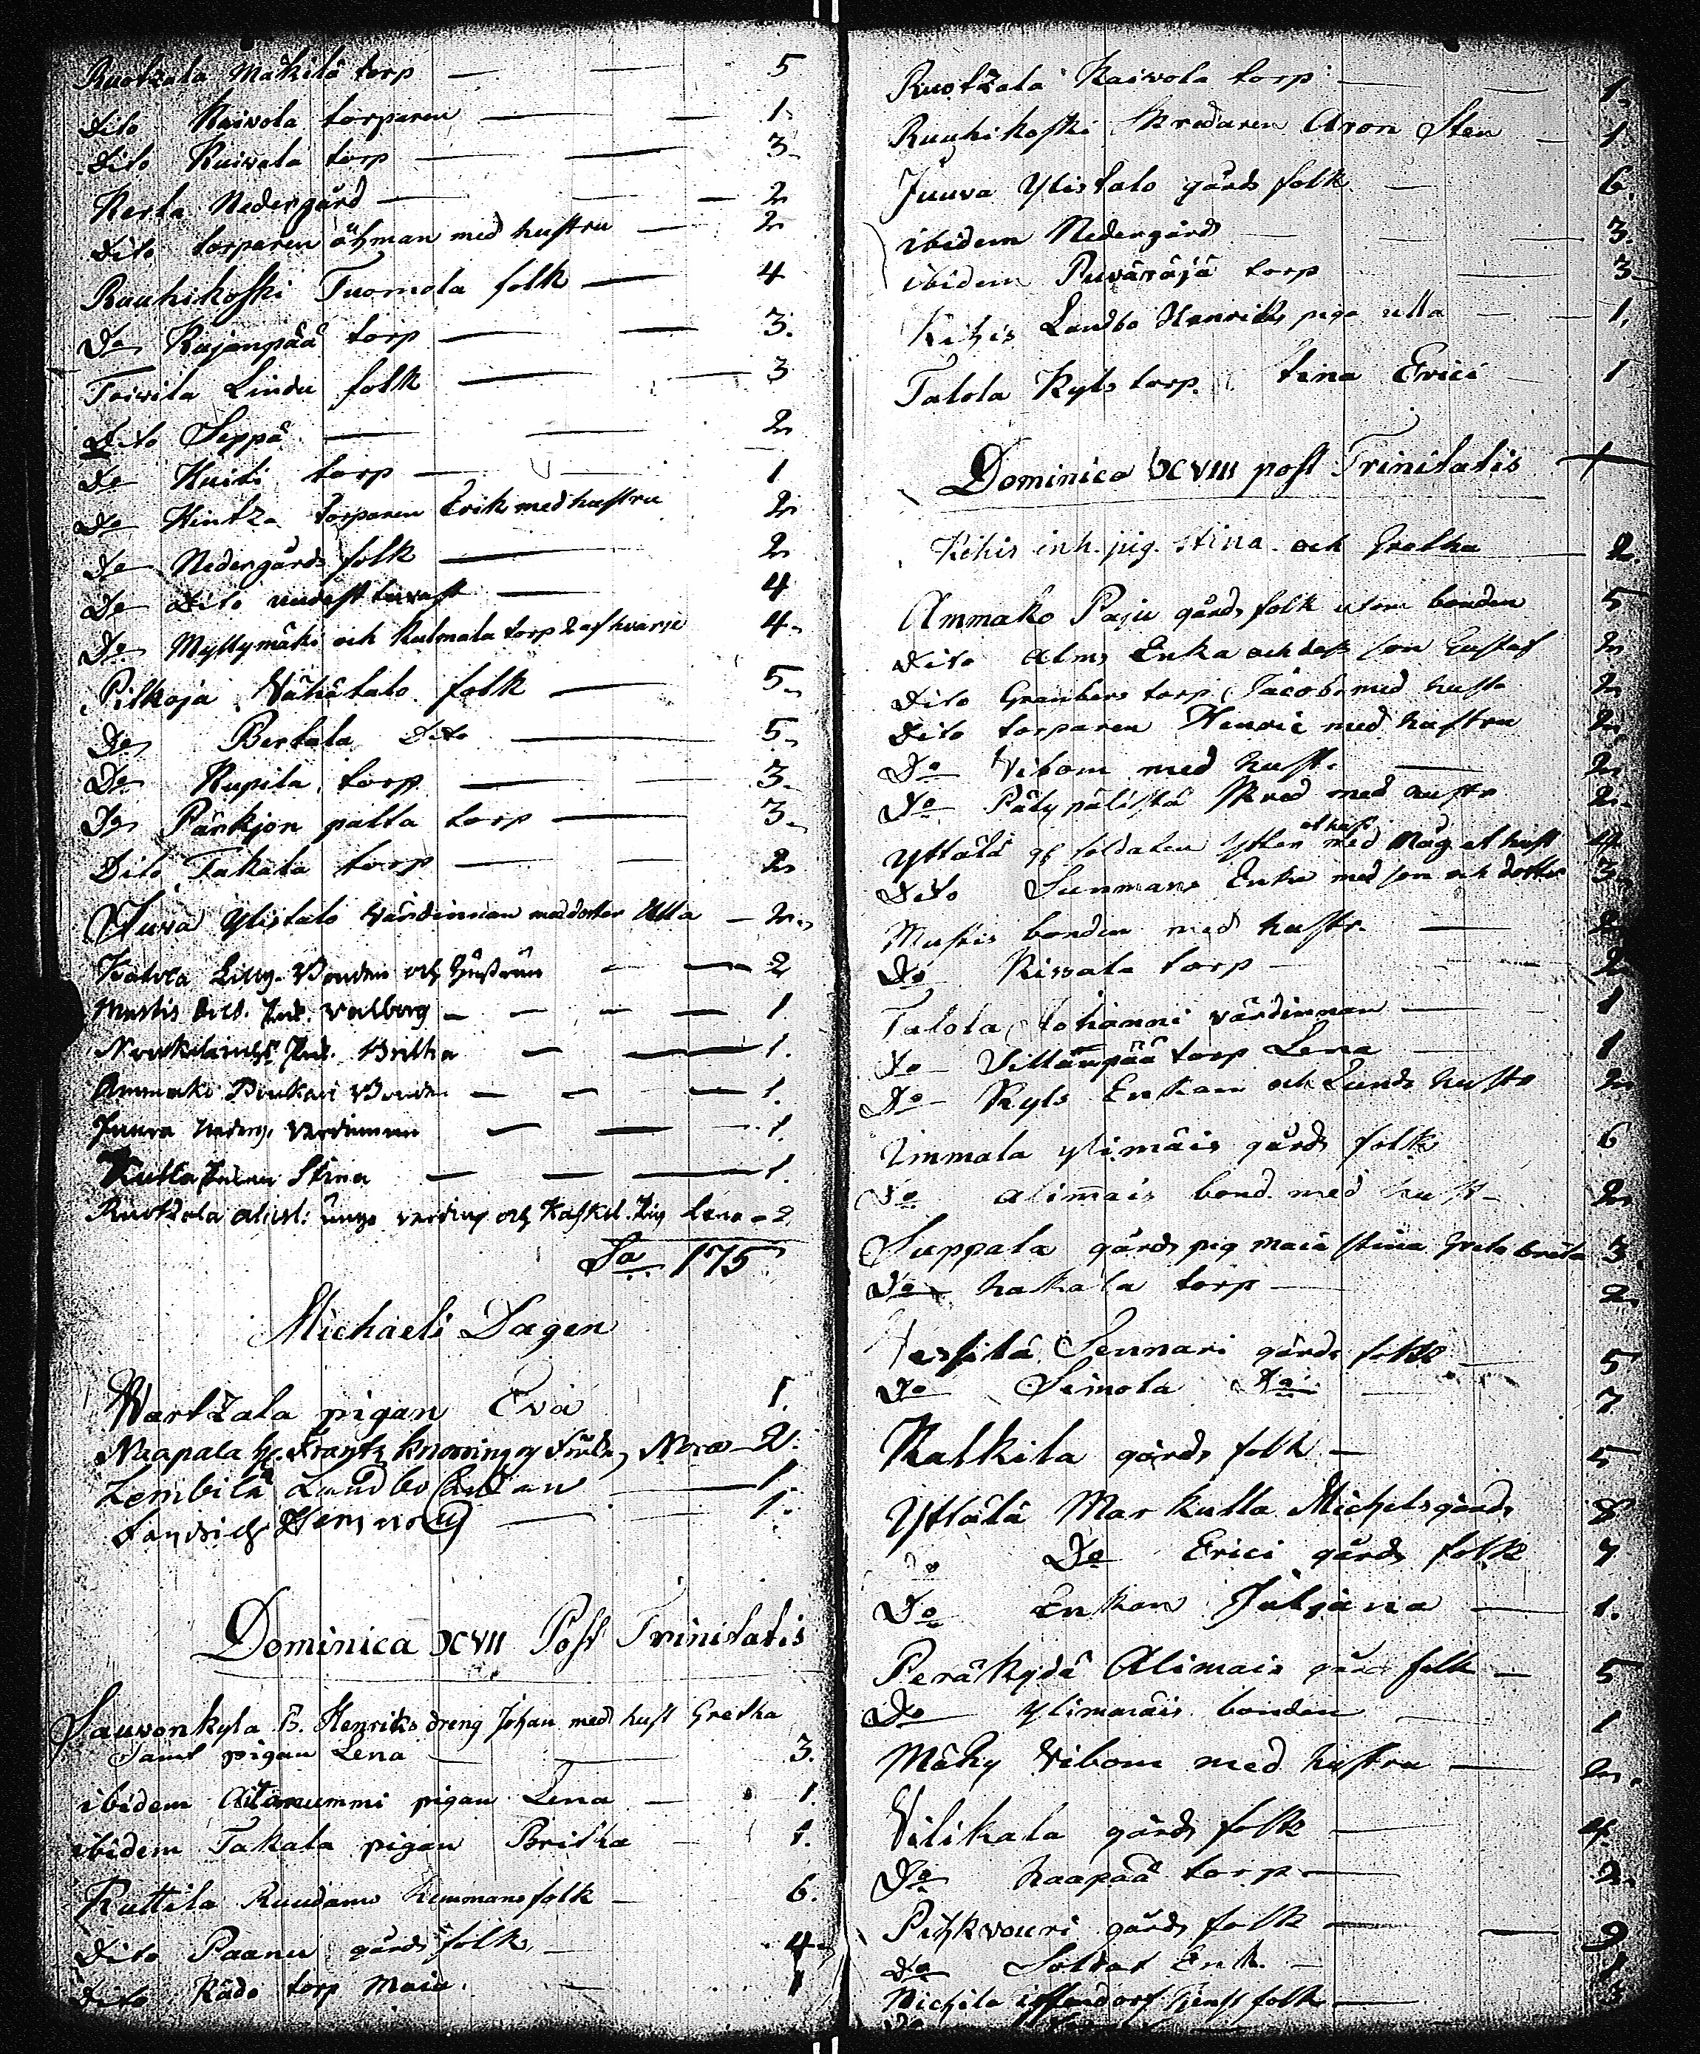 Ruotzala Mäkilä torp — — 5
Dito Kaivola torparen — — 1.
Dito Kuivala torp — — 3.
Kerla Nedergård — — 2
Dito torparen öhman med hustru — 2
Rauhikoski Tuomola folk — 4
Do Rajanpää torp — — 3.
Toivila Lindu folk — — 3
Dito Seppä — — 2
Do Huiti torp — — 1
Do Hintza torparen Erik med hustru 2
Do Nedergårds folk — 2
Do Dito — 4
Do Myllymäki och Kulmala torp 2 af hvarje 4.
Pilkoja Vähätalo folk — 5.
Do Bertala Dito — 5.
Do Kupila torp — — 3.
Do Pärkjon palta torp — — 3.
Dito Takala torp — — 2
Juva Ylistalo Värdinnan med doter Ulla — 2.
Bonden och hustrun — — 2
Mustis Valborg — — — — 1.
Britha — — 1.
Ammako Bonde — — — 1.
Juuva Nederg. Verdinnan — — — 1.
Kutla Stina — — — 1.
Ruotzala unga verding och Pig Lena — 2.
Sa 175
Michaeli Dagen
Wartzala pigan Eva 1.
Naapala Hr. Frantz Knorring og Nora — 2.
Zembilä Landbo — 1
— 1.
Dominica XVII Post Trinitatis
Sauvonkyla B. Henriks dreng Johan med hust Gretha
samt pigan Lena — — 3.
ibidem Aitonummi pigan Lena — 1.
ibidem Takala pigan Britha — 1.
Ruttila Ruudamo hemmans folk — 6.
Dito Paanu gårds folk — 4.
Dito Rädo torp Maia — 1
Ruotzala Kaivola torp — — 1.
Ruuhikoski Skredaren Aron Sten — 1
Juuva Ylistalo gårds folk — 6.
ibidem Nedergård — — — 3.
ibidem Puvänäjä torp — — 3
Kihis Landbo Henriks piga ulla — — 1.
Talola Kyls torp. Stina Erici — 1
Dominica XVIII post Trinitatis
Kihis inh. pig. Stina och Gretha — 2.
Ammako Paju gårds folk utom bonden 5
Dito alms Enka och des son Gustaf 2
Dito Granbers torp. Jacob med hust. 2
Dito torparen Henric med hustru 2.
Do Vibom med hust. — 2
Do Pälypälistä Skred med hustr 2.
Yttälä gl soldaten Ytten med Måg et hust 4
Dito Sunmans Enka med son och dotter 3
Mustis bonden med hustr. — 2
Do Rissala torp — — 2
Talola Johanni värdinnan — 1
Do Villänpää torp Lena — 1
Do Kyls Enkan och Lunds hustr 2
Immala ylimäis gårds folk 6
Do alimäis bond. med hust — 2
Suppala gårds pig maia stina Greta brita 3
Do hakala torp — 2.
Sennari gårds folk — 5
Do Simola Do — 7
Kalkila gårds folk — 5
Yttälä Markulla Michelsgårds 8
Do Do Erici gårds folk 7
Do Enkan Juliana — 1.
Peräkylä Alimais gårds folk — 5
Do Ylimaräis bonden — 1
Mäky Vibom med hustru — 2.
Vilikala gårds folk — 4
Do haapaä torp — 2.
Pitkvouri gårds folk — — 9
Do Soldat Enk. — 1
Nichila folk — 3